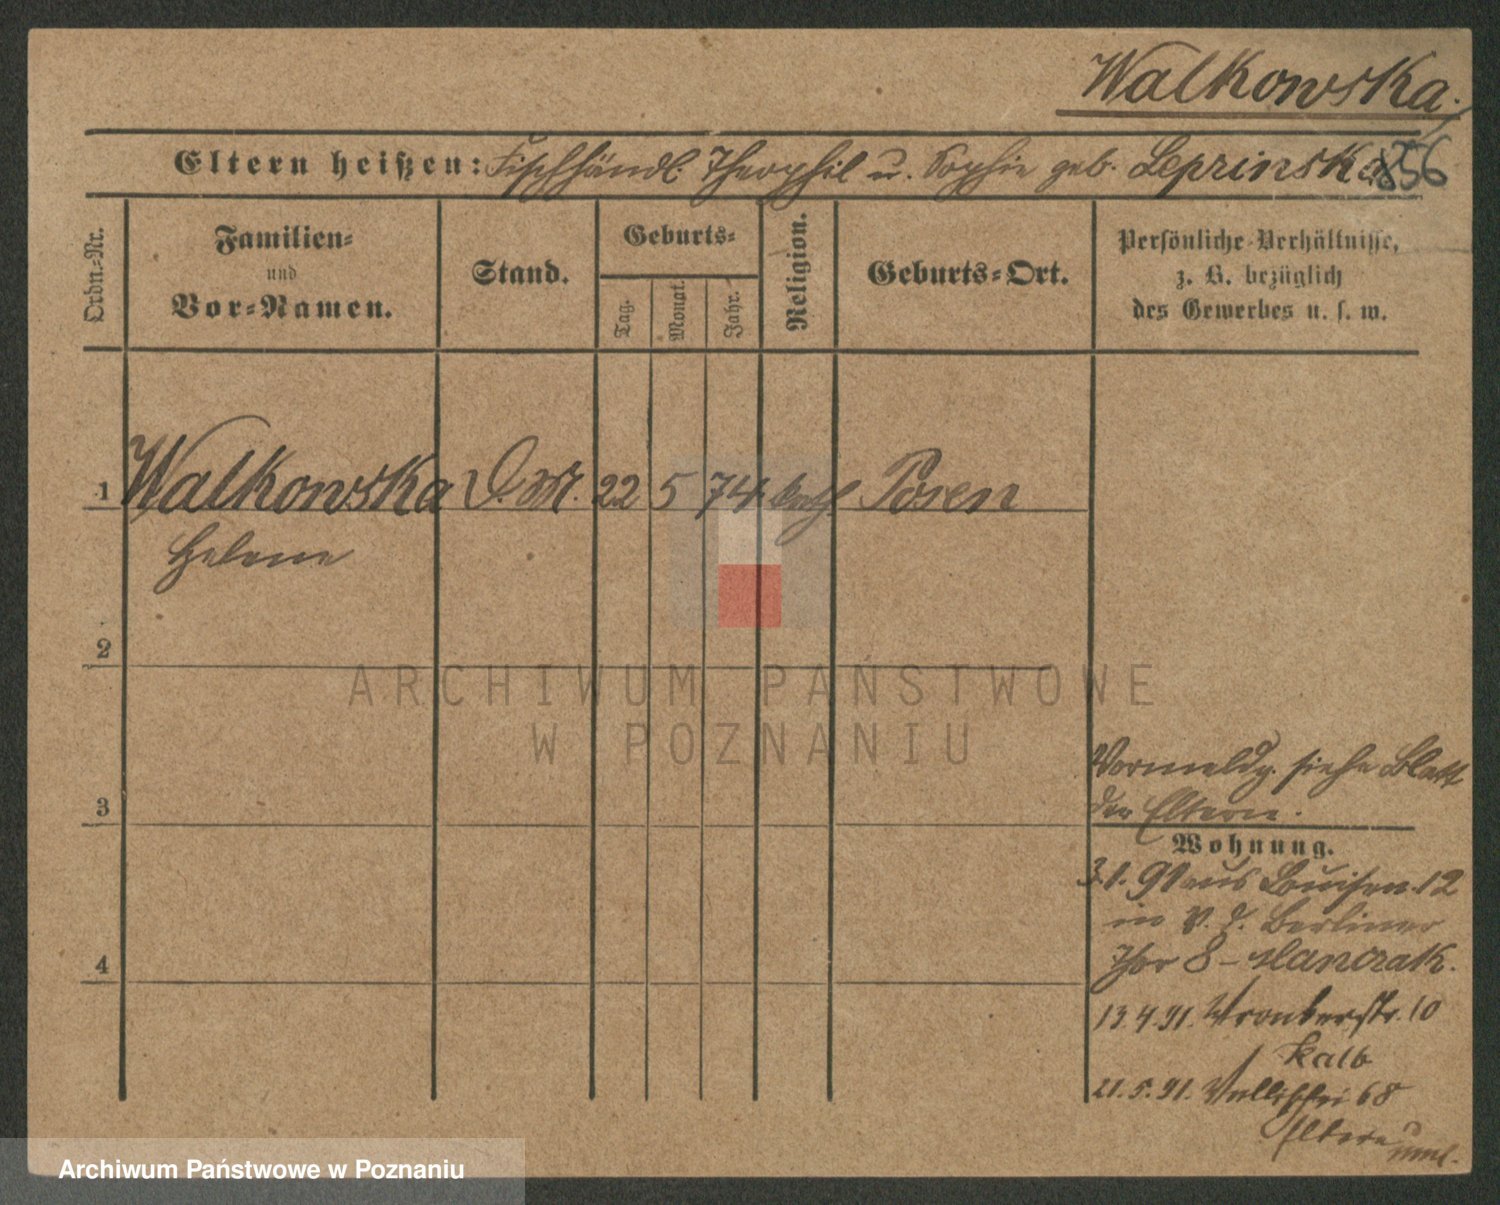 Walkowska.
856
Eltern heißen: Fischhändl. Theophil u. Sophie geb. Leprinska
Ordn.-Nr.
Familien-
und
Vor-Namen.
Stand.
Geburts-
Tag.
Monat.
Jahr.
Religion.
Geburts-Ort.
Persönliche Verhältnisse,
z. B. bezüglich
des Gewerbes u. s. w.
1 Walkowska D. M. 22 5 74 kath. Posen
Helene
2
ARCHIWUM PAŃSTWOWE
W POZNANIU
3
4
Vormeldg. siehe Blatt
der Eltern.
Wohnung.
3.1.91 aus Louisen. 12
in V. d. Berliner
Thor 8 -
13.4.91. Wronkerstr. 10
Kalb
21.5.91. Wallischei 68
Eltern
Archiwum Państwowe w Poznaniu